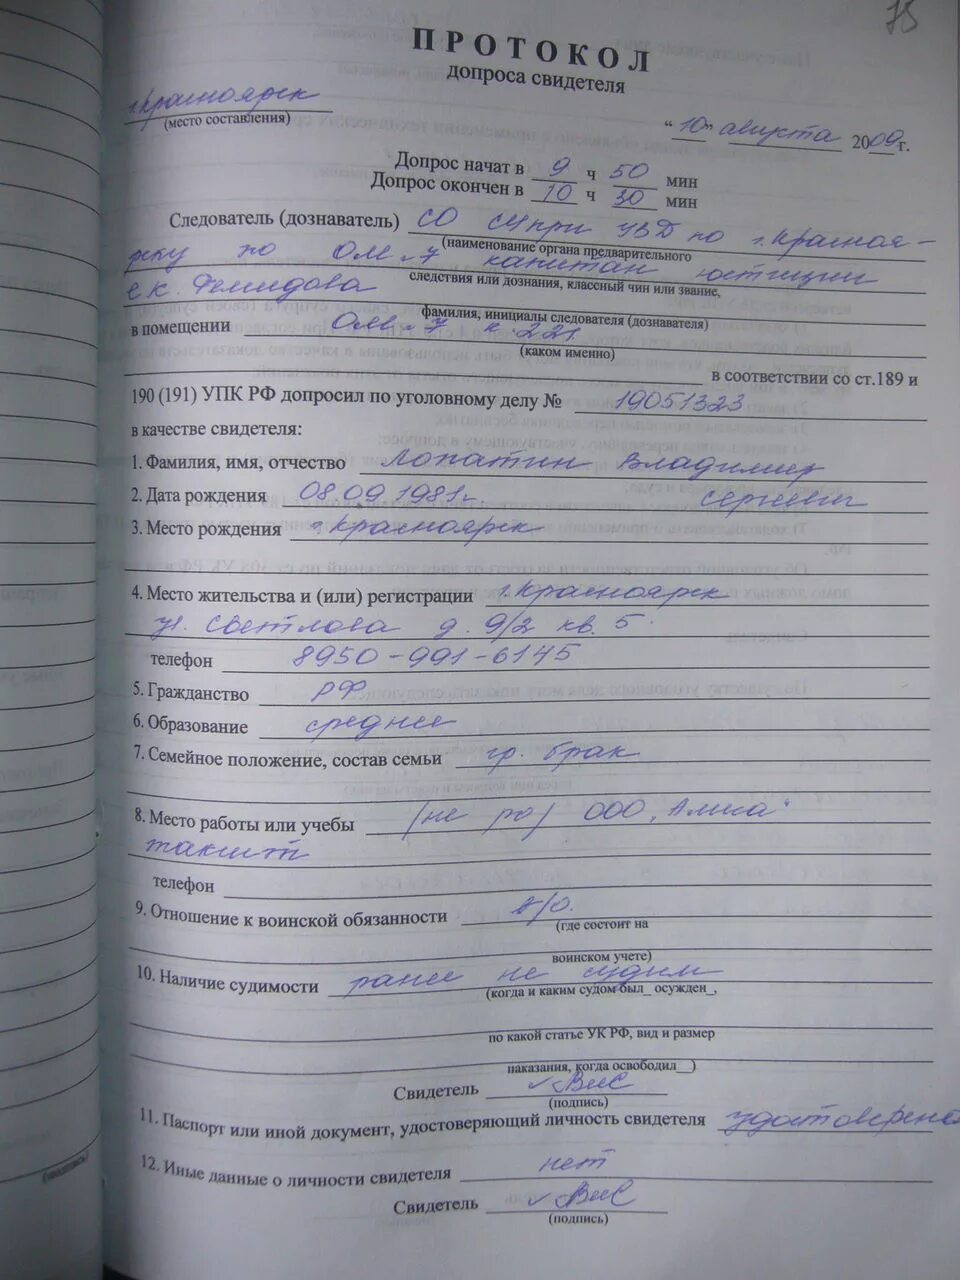 75
ПРОТОКОЛ
допроса свидетеля
г. Красноярск
(место составления)
"10" августа 2009г.
Допрос начат в 9 ч 50 мин
Допрос окончен в 10 ч 30 мин
Следователь (дознаватель) СО СУ при УВД по г. Красноя-
(наименование органа предварительного
рку по ОМ-7 капитан юстиции
следствия или дознания, классный чин или звание,
Е.К. Демидова
фамилия, инициалы следователя (дознавателя)
в помещении ОМ-7 к. 221.
(каком именно)
в соответствии со ст.189 и
190 (191) УПК РФ допросил по уголовному делу № 19051323
в качестве свидетеля:
1. Фамилия, имя, отчество Лопатин Владимир
2. Дата рождения 08.09.1981г. Сергеевич
3. Место рождения г. Красноярск
4. Место жительства и (или) регистрации г. Красноярск
ул. Светлова д. 9/2 кв. 5.
телефон 8950-991-6145
5. Гражданство РФ
6. Образование среднее
7. Семейное положение, состав семьи гр. брак
8. Место работы или учебы (не ро) ООО "
таксист
телефон
9. Отношение к воинской обязанности в/о.
(где состоит на
воинском учете)
10. Наличие судимости ранее не судим
(когда и каким судом был_ осужден_,
по какой статье УК РФ, вид и размер
наказания, когда освободил__)
Свидетель
(подпись)
11. Паспорт или иной документ, удостоверяющий личность свидетеля удостоверено
12. Иные данные о личности свидетеля нет
Свидетель
(подпись)